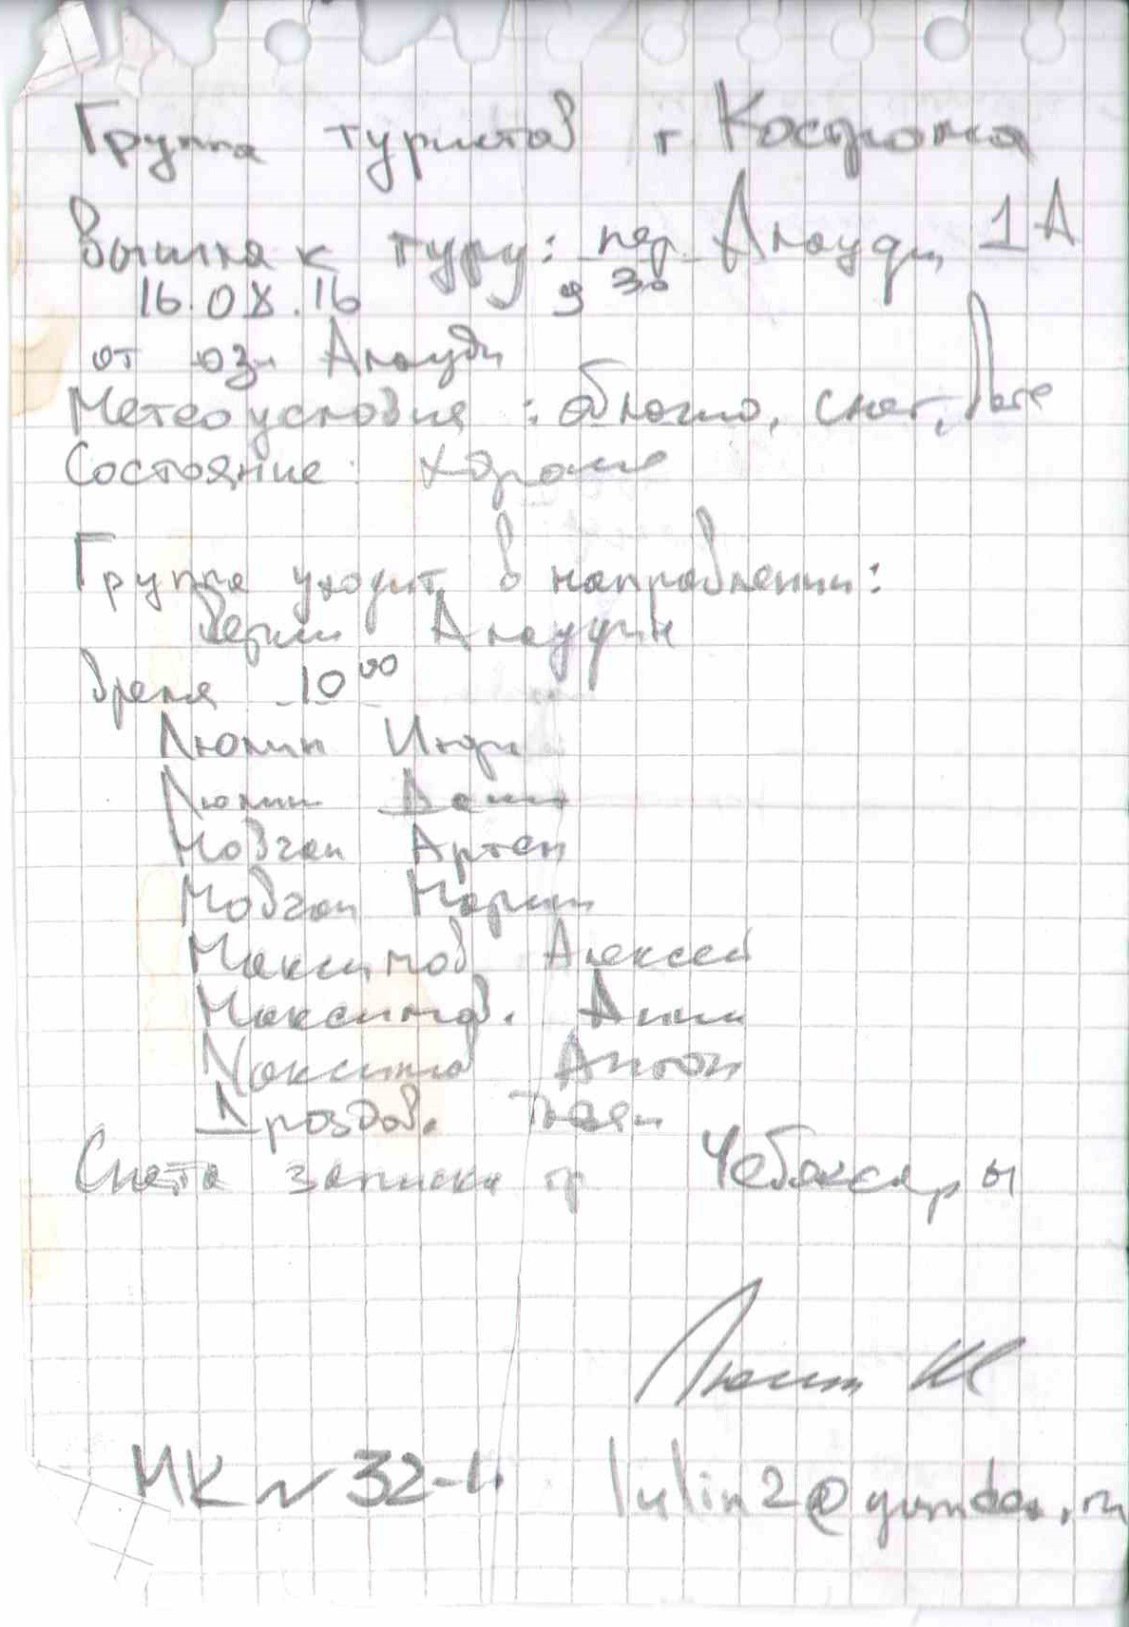 Группа туристов г Кострома
Вышла к туру: пер. Алауди 1А
16.08.16 9 30
от оз. Алауди
Метеоусловия: облачно, снег,
Состояние: хорошее
Группа уходит в направлении:
Алаудин
Время 10 00
Люлин
Люлин Денис
Мовчан Артем
Мовчан Мария
Максимов Алексей
Максимов. Анна
Максимов Антон
Дроздов.
Снята записка гр Чебоксары
Люлин
МК № 32-4 lulin2@yandex.ru